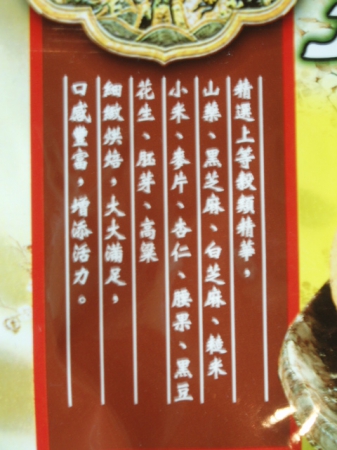 精選上等穀類精華，
山藥、黑芝麻、白芝麻、糙米
小米、麥片、杏仁、腰果、黑豆
花生、胚芽、高粱
細緻烘焙，大大滿足，
口感豐富，增添活力。